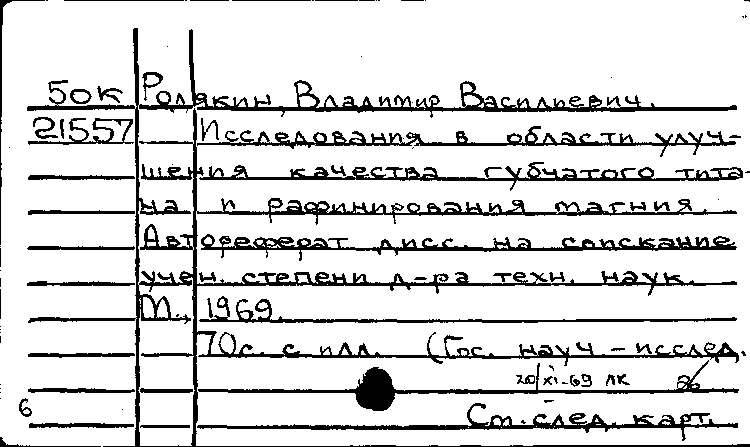 50К Родякин, Владимир Васильевич.
21557 Исследования в области улуч-
шения качества губчатого тита-
на и рафинирования магния.
Автореферат дисс. на соискание
учен. степени д-ра техн. наук.
М., 1969.
70с. с илл. (Гос. науч-исслед.
20/XI-69 ЛК
6 См. след. карт.